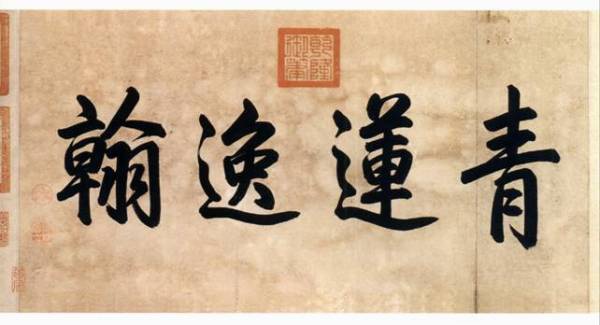 青蓮逸翰
乾隆御筆